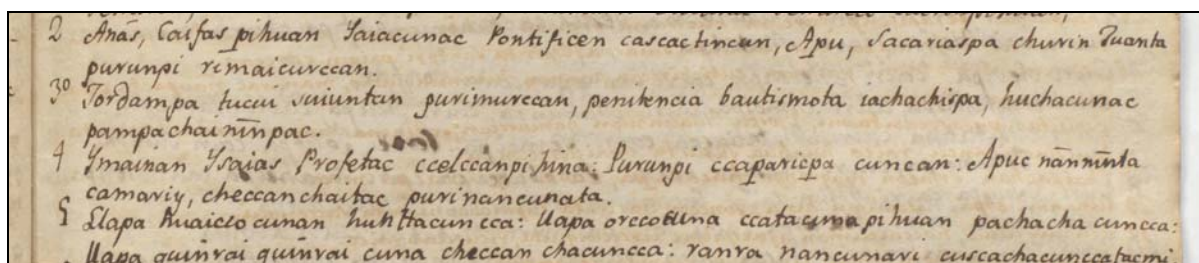 2 Anas, Caifas pihuan Saiacunac Pontificen cascactincun, Apu, Sacariaspa churin Juanta
purunpi rimaicurccan.
3º Jordampa tucui suiuntan purimurccan, penitencia bautismota iachachispa, huchacunac
pampachaininpac.
4 Ymainan Ysaias Profetac ccelccanpi hina: Purunpi ccaparicpa cuncan: Apuc ñanninta
camariy, checcanchaitac purinancunata.
5 Llapa huaicco cunan hunttacuncca: llapa orcco cuna ccata cunapihuan pachacha cuncca:
llapa quinrai quinrai cuna checcan chacuncca: ranra nancunari cuscachacuncca